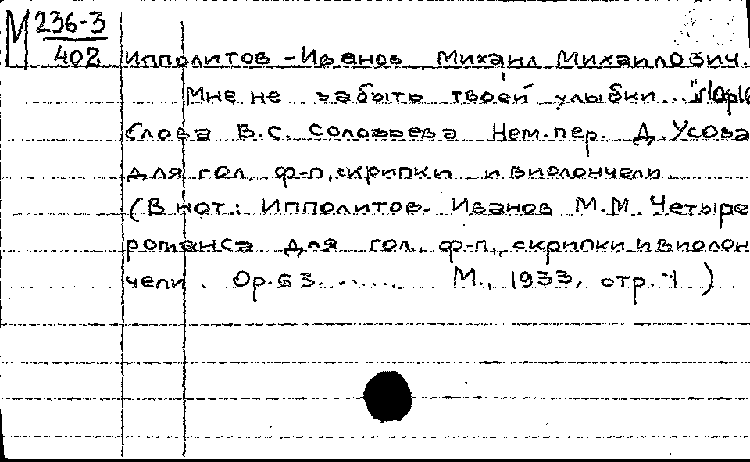 М 236-3
402 Ипполитов-Иванов Михаил Михайлович.
Мне не забыть твоей улыбки...
Слова В.С. Соловьева Нем. пер. Д. Усова
для гол., ф-п, скрипки и виолончели
(В нот.: Ипполитов-Иванов М.М. Четыре
романса для гол., ф-п., скрипки и виолон
чели. Op. 63 ...... М., 1933, стр. 1)